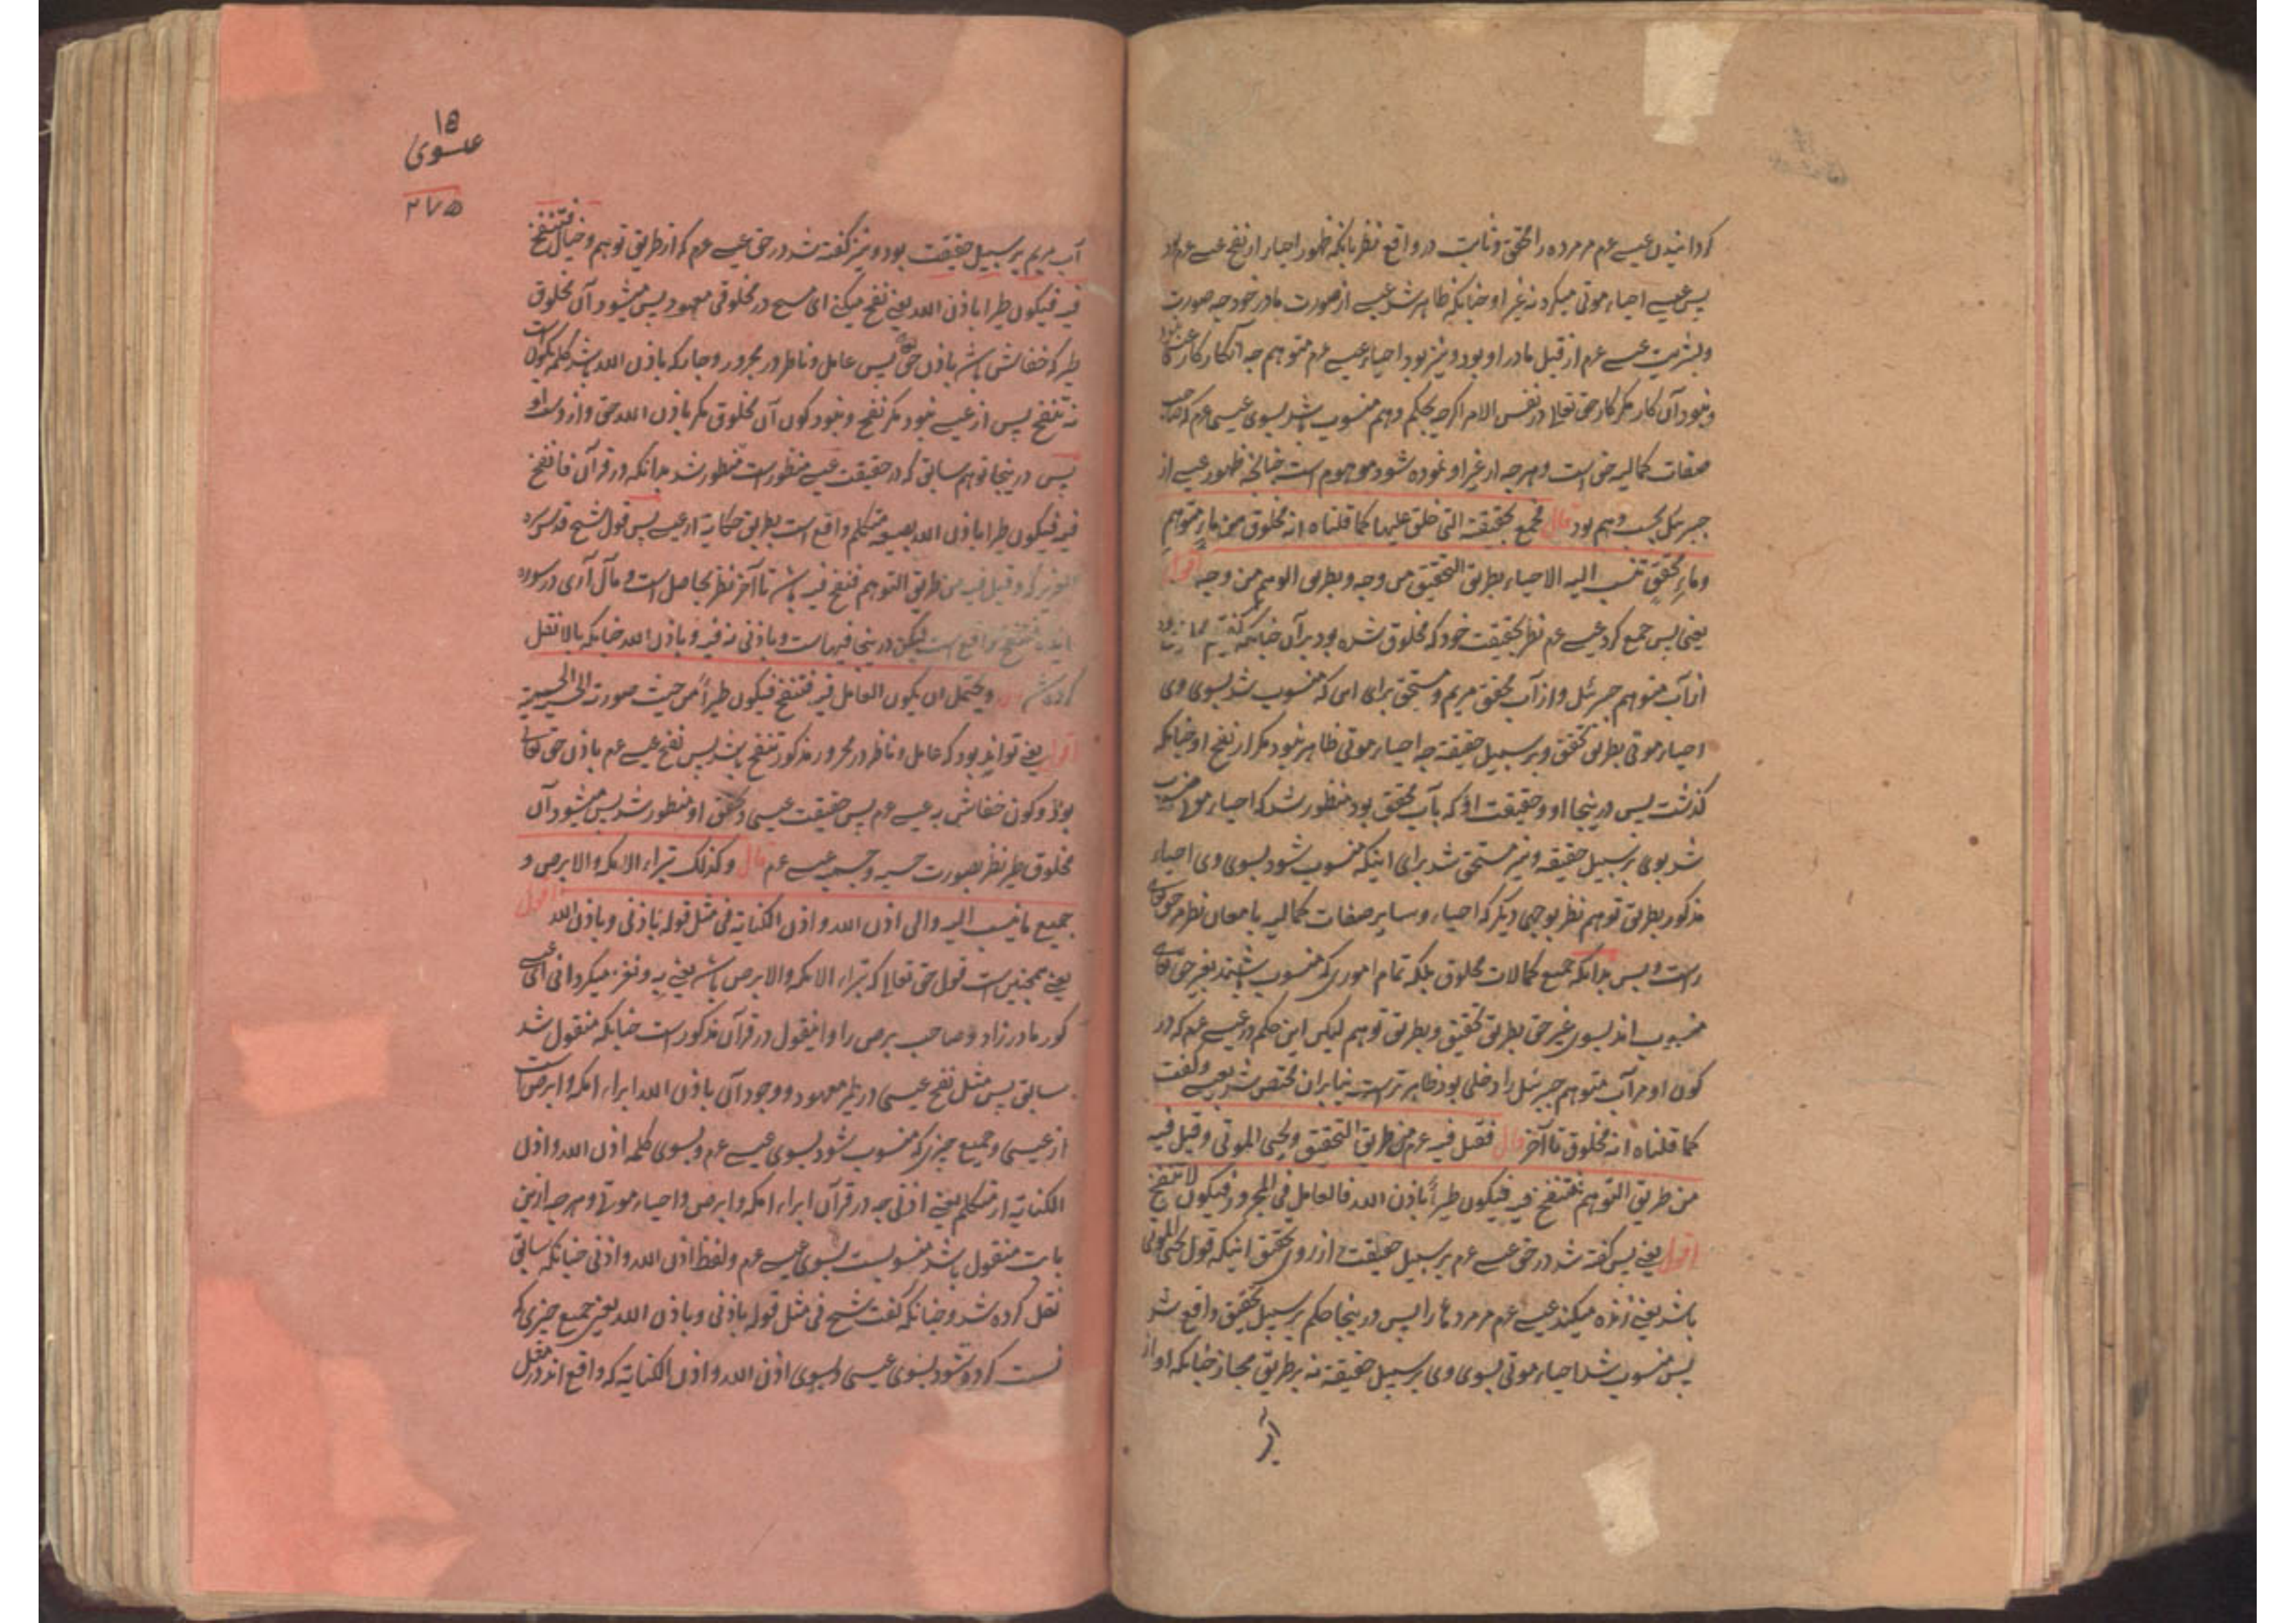 کردانیدن عیسے عم مر مرده را محقق و ثابت در واقع نظر بانکه ظهور احیا از نفخ عیسے عم بود
پس عیسے احیاء موتی میکرد نه غیر او چنانکه ظاهر شد عیسے از صورت مادر خود چه صورت
و بشریت عیسے عم از قبل مادر او بود و نیز بود احیاء عیسے عم متوهم چه آنکار کار
و نبود آن کار مکر کار حق تعالی در نفس الامر اکرچه بحکم وهم منسوب شد بسوی عیسی عم
صفات کمالیه حق است و هرچه از غیر او نموده شود موهوم است چنانچه ظهور عیسے از
جبرئیل بحسب وهم بود قال فجمع بحقیقته التی خلق علیها کما قلناه انه مخلوق من ماء متوهم
وماء محقق تنسب الیه الاحیاء بطریق التحقیق من وجه وبطریق الوهم من وجه اقول
یعنی پس جمع کرد عیسے عم نظر بحقیقت خود که مخلوق شده بود بر آن چنانکه گفتیم
از آب متوهم جبرئیل و از آب محقق مریم و مستحق برای این که منسوب شد بسوی وی
احیاء موتی بطریق تحقق و بر سبیل حقیقة چه احیاء موتی ظاهر نبود مکر از نفخ او چنانکه
کذشت پس درینجا او و حقیقت او که بآب محقق بود منظور شد که احیاء موتی منسوب
شد بوی بر سبیل حقیقه و نیز مستحق شد برای اینکه منسوب شود بسوی وی احیاء
مذکور بطریق توهم نظر بوجهی دیکر که احیاء و سایر صفات کمالیه بامعان نظر مر حق تعالی
راست و بس بدانکه جمیع کمالات مخلوق بلکه تمام اموری که منسوب باشند بغیر حق تعالی
منسوب اند بسوی غیر حق بطریق تحقیق و بطریق توهم لیکن این حکم در عیسے عم که در
کون او مر آب متوهم جبرئیل را دخلی بود ظاهر تر است بنابران مختص شد بعیسے و گفت
کما قلناه انه مخلوق تا آخر قال فقیل فیه عم من طریق التحقیق ویحیی الموتی وقیل فیه
من طریق التوهم فتنفخ فیه فیکون طیراً باذن الله فالعامل فی المجرور فیکون لا تنفخ
اقول یعنے پس گفته شد در حق عیسے عم بر سبیل حقیقت از روی تحقق اینکه قول یحیی الموتی
باشد یعنے زنده میکند عیسے عم مر مردها را پس درینجا حکم بر سبیل تحقیق واقع شد
پس منسوب شد احیاء موتی بسوی وی بر سبیل حقیقة نه بر طریق مجاز چنانکه او از
از
۱۵
عیسوی
۲۷۵
آب مریم بر سبیل حقیقت بود و نیز گفته شد در حق عیسے عم که از طریق توهم و خیال فتنفخ
فیه فیکون طیرا باذن الله یعنے نفخ میکنے ای مسیح در مخلوقی معهود پس میشود آن مخلوق
طیر که خفاش باشد باذن حق تعالی پس عامل و ناظر در مجرور و جار که باذن الله باشد کلمه یکون است
نه تنفخ پس از عیسے نبود مکر نفخ و نبود کون آن مخلوق مکر باذن الله حق و از
پس درینجا توهم سابق که در حقیقت عیسے منظور است منظور شد بدانکه در قرآن فانفخ
فیه فیکون طیرا باذن الله بصیغه متکلم واقع است بطریق حکایة از عیسے پس قول شیخ قدس سره
العزیز که وقیل فیه من طریق التوهم فتنفخ فیه باشد تا آخر نظر بحاصل است و مآل آری در سوره
مایده فتنفخ واقع است لیکن درینجا فیها است و باذنی نه فیه و باذن الله چنانکه بالا نقل
کرده شد قال ویحتمل ان یکون العامل فیه فتنفخ فیکون طیراً من حیث صورته الحسیة
اقول یعنے تواند بود که عامل و ناظر در مجرور مذکور تنفخ باشد پس نفخ عیسے عم باذن حق تعالی
بود و کون خفاش به عیسے عم پس حقیقت عیسی و تحقق او منظور شد پس میشود آن
مخلوق طیر نظر بصورت حسیه و جسمیه عیسے عم قال وکذلک تبرئ الاکمه والابرص و
جمیع ما ینسب الیه والی اذن الله واذن الکنایة فی مثل قوله باذنی وباذن الله اقول
یعنے همچنین است قول حق تعالی که تبرئ الاکمه والابرص باشد یعنے به و نغز میکردانی ای عیسے
کور مادرزاد و صاحب برص را و اینقول در قرآن مذکور است چنانکه منقول شد
سابق پس مثل نفخ عیسی در طیر معهود و وجود آن باذن الله ابراء اکمه و ابرص است
از عیسی و جمیع چیزی که منسوب شود بسوی عیسے عم و بسوی کلمه اذن الله و اذن
الکنایة از متکلم یعنے اذنی چه در قرآن ابراء اکمه و ابرص و احیاء موتی و هرچه ازین
بابت منقول باشد منسوبست بسوی عیسے عم و لفظ اذن الله و اذنی چنانکه سابق
نقل کرده شد و چنانکه گفت شیخ فی مثل قوله باذنی وباذن الله یعنے جمیع چیزی که
نسبت کرده شود بسوی عیسی و بسوی اذن الله و اذن الکنایة که واقع اند در مثل